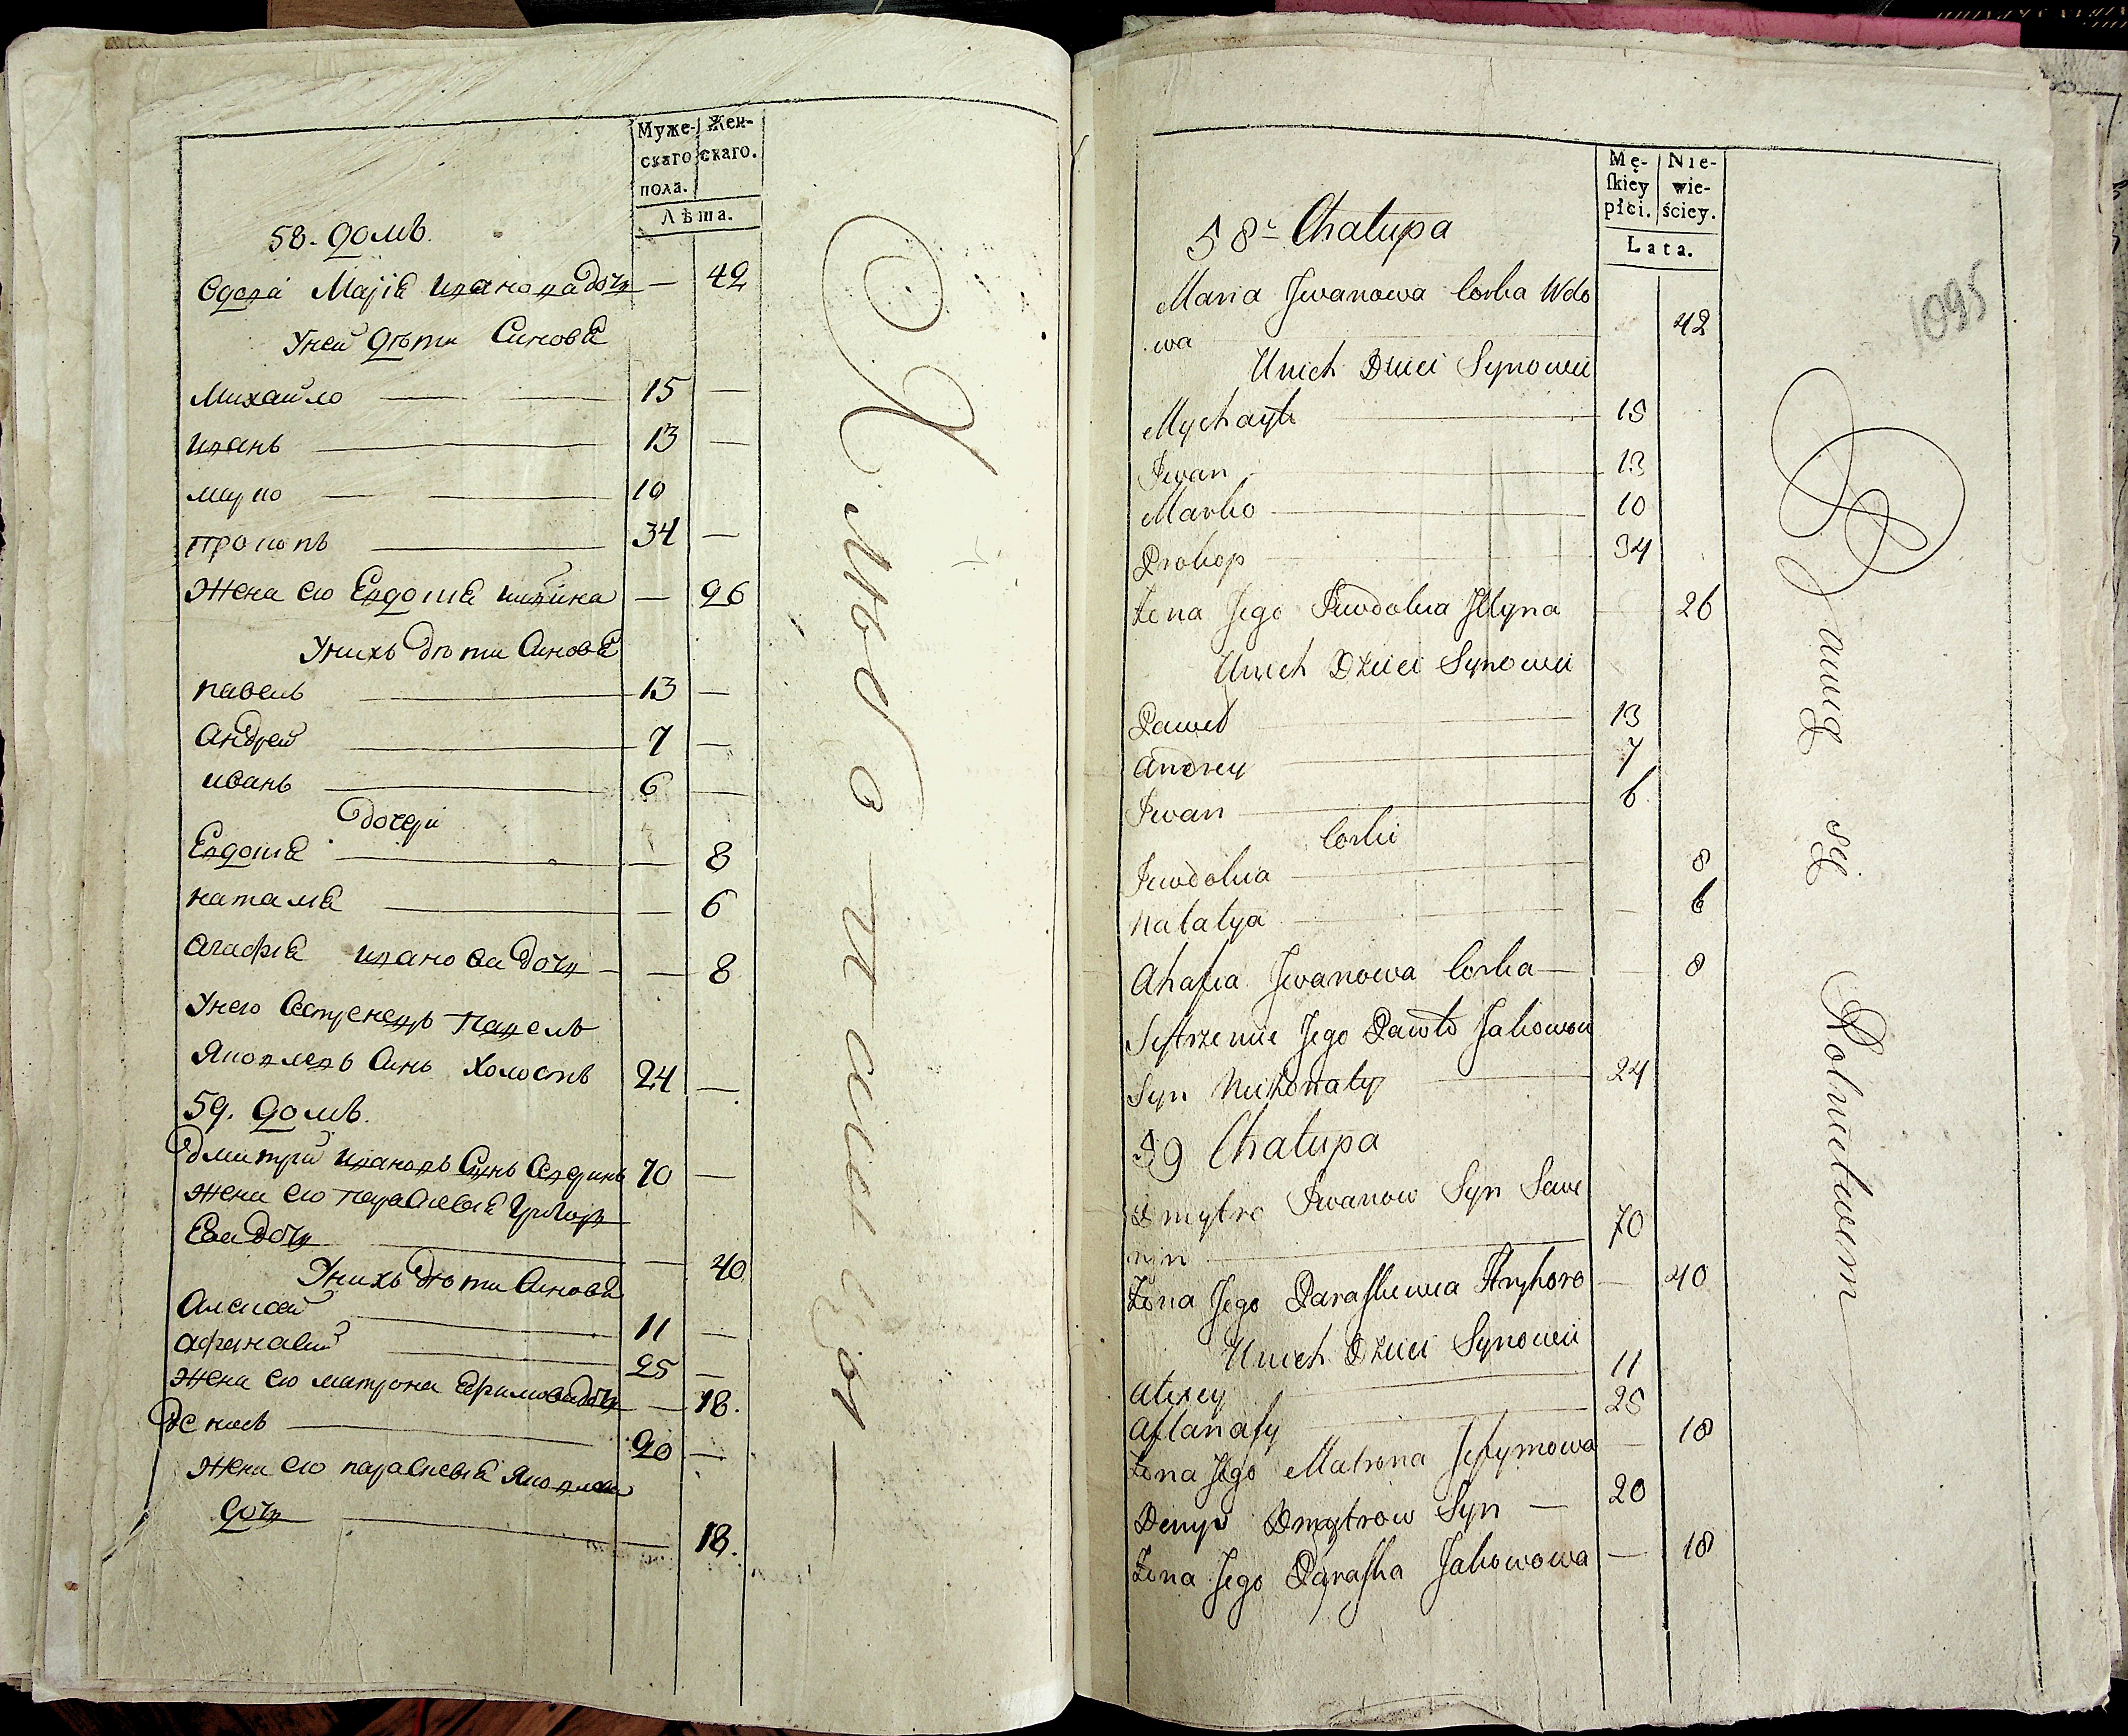 Муже-
скаго
пола.
Жен-
скаго.
Лѣта.
58. домъ.
Вдова Марія Иванова дочь — 42
У ней дѣти Синовя
Михайло 15 —
Иванъ 13 —
Марко 10
Прокопъ 34 —
Жена его Евдокія — 26
У нихъ дѣти Синовя
павелъ 13 —
Андрей 7 —
иванъ 6 —
дочери
Евдокія — 8
наталія — 6
Агафія Иванова дочь — 8
У него Сестренецъ Павелъ
Яковлевъ Синъ холостъ 24 —
59. домъ.
Дмитрій Ивановъ Синъ 70 —
Жена его параскевія Григор
Ева дочь — 40
У нихъ дѣти Синовя
Алексей 11 —
Афанасій 25 —
Жена его матрона Ефимова дочь — 18.
Денисъ 20 —
Жена его параскевія Яковлева
дочь — 18.
Mę-
skiey
płci.
Nie-
wie-
ściey.
Lata.
1095
58 Chałupa
Maria Jwanowa Corka Wdo
wa 42
Unich Dzieci Synowie
Mychayło 15
Jwan 13
Marko 10
Prokop 34
Żona Jego Jewdokia Jllyna 26
Unich Dzieci Synowie
Paweł 13
Andrey 7
Jwan 6
Corki
Jewdokia 8
Natalya — 6
Ahafia Jwanowa Corka — 8
Sestrzeniec Jego Pawło Jakowow
Syn Nieżonaty 24
59 Chałupa
Dmytro Jwanow Syn Sawe
ryn 70
Żona Jego Paraskiewia Hryhoro — 40
Unich Dzieci Synowie
Alexey 11
Aftanasy 25
Żona Jego Matrona Jefymowa — 18
Denys Dmytrow Syn — 20
Żona Jego Paraska Jakowowa — 18